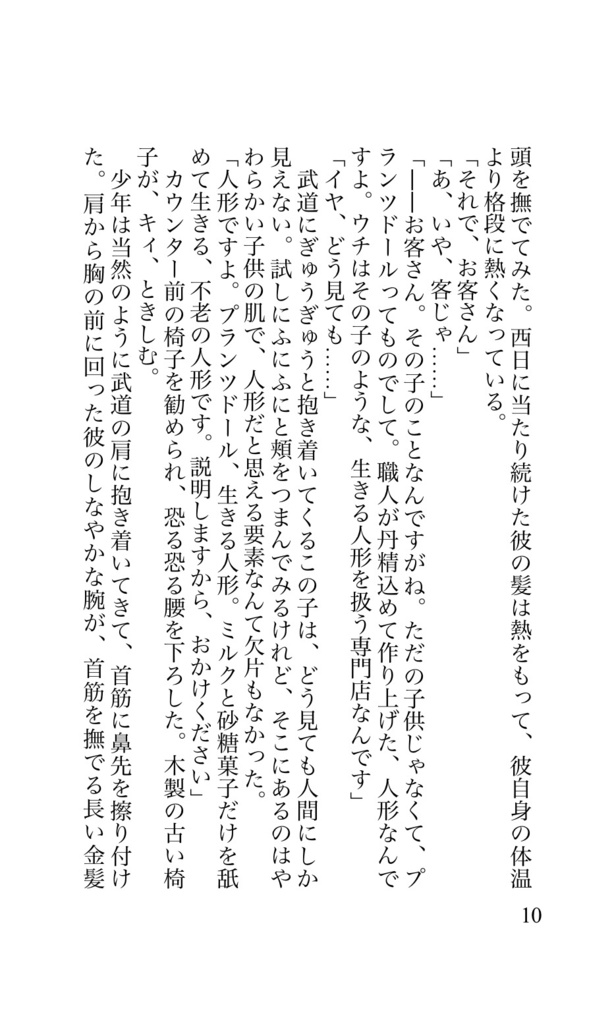 頭を撫でてみた。西日に当たり続けた彼の髪は熱をもって、彼自身の体温
より格段に熱くなっている。
「それで、お客さん」
「あ、いや、客じゃ……」
「――お客さん。その子のことなんですがね。ただの子供じゃなくて、プ
ランツドールってものでして。職人が丹精込めて作り上げた、人形なんで
すよ。ウチはその子のような、生きる人形を扱う専門店なんです」
「イヤ、どう見ても……」
武道にぎゅうぎゅうと抱き着いてくるこの子は、どう見ても人間にしか
見えない。試しにふにふにと頬をつまんでみるけれど、そこにあるのはや
わらかい子供の肌で、人形だと思える要素なんて欠片もなかった。
「人形ですよ。プランツドール、生きる人形。ミルクと砂糖菓子だけを舐
めて生きる、不老の人形です。説明しますから、おかけください」
カウンター前の椅子を勧められ、恐る恐る腰を下ろした。木製の古い椅
子が、キィ、ときしむ。
少年は当然のように武道の肩に抱き着いてきて、首筋に鼻先を擦り付け
た。肩から胸の前に回った彼のしなやかな腕が、首筋を撫でる長い金髪
10